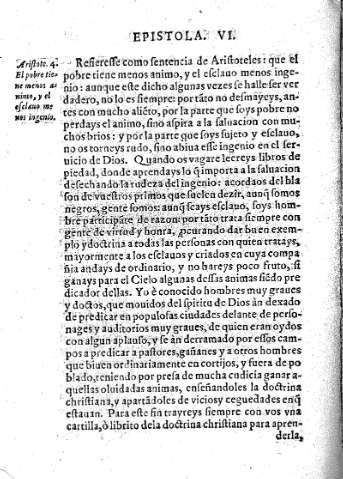 EPISTOLA. VI.
Aristote. 4.
El pobre tie-
ne menos a-
nimo, y el
esclauo me
nos ingenio.
Refieresse como sentencia de Aristoteles: que el
pobre tiene menos animo, y el esclauo menos inge-
nio: aunque este dicho algunas vezes se halle ser ver
dadero, no lo es siempre: por tãto no desmayeys, an-
tes con mucho aliẽto, por la parte que soys pobre no
perdays el animo, sino aspira a la saluacion con mu-
chos brios: y por la parte que soys sujeto y esclauo,
no os torneys rudo, sino abiua esse ingenio en el ser-
uicio de Dios. Quando os vagare leereys libros de
piedad, donde aprendays lo q̃ importa a la saluacion
desechando la rudeza del ingenio: acordaos del bla
son de vuestros primos que suelen dezir, aunq̃ somos
negros, gente somos: aunq̃ seays esclauo, soys hom-
bre participãte de razon: por tãto trata siempre con
gente de virtud y honra, procurando dar buen exem-
plo y doctrina a todas las personas con quien tratays,
mayormente a los esclauos y criados en cuya compa
ñia andays de ordinario, y no hareys poco fruto, si
ganays para el Cielo algunas dessas animas siẽdo pre
dicador dellas. Yo è conocido hombres muy graues
y doctos, que mouidos del spiritu de Dios àn dexado
de predicar en populosas ciudades delante de perso-
nages y auditorios muy graues, de quien eran oydos
con algun aplauso, y se àn derramado por essos cam-
pos a predicar a pastores, gañanes y a otros hombres
que biuen ordinariamente en cortijos, y fuera de po
blado, teniendo por presa de mucha cudicia ganar a-
quellas oluidadas animas, enseñandoles la doctrina
christiana, y apartãdoles de vicios y ceguedades en q̃
estauan. Para este fin trayreys siempre con vos vna
cartilla, ò librito de la doctrina christiana para apren-
derla,